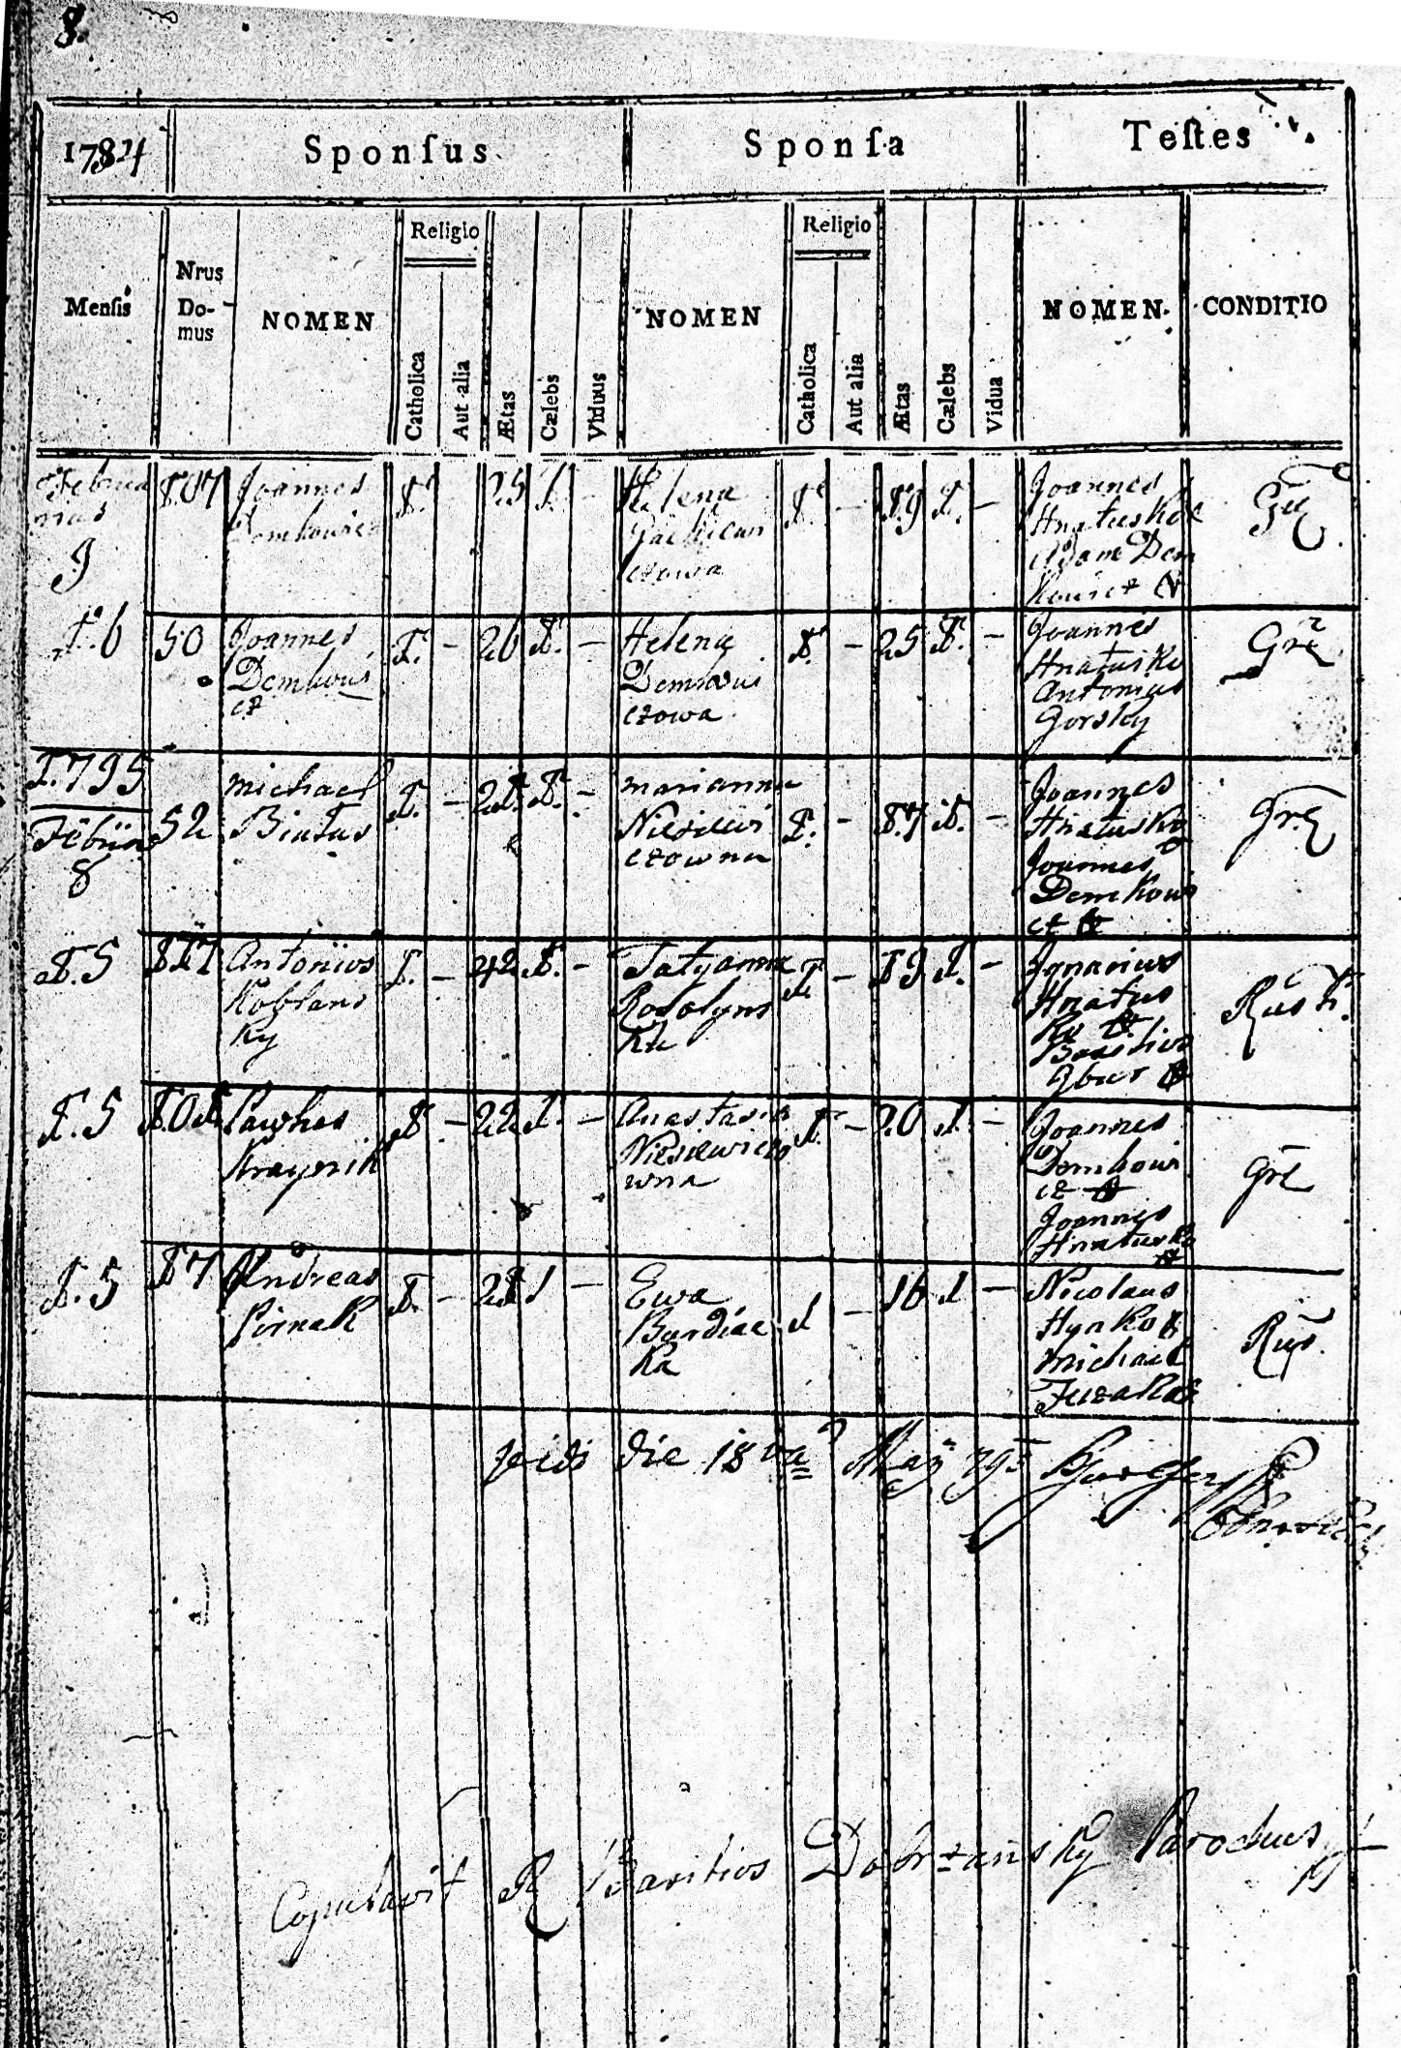 8.
1784
Sponſus
Sponſa
Teſtes
Menſis
Nrus
Do-
mus
NOMEN
Religio
Catholica
Aut alia
Ætas
Cælebs
Viduus
NOMEN
Religio
Catholica
Aut alia
Ætas
Cælebs
Vidua
NOMEN
CONDITIO
Februa
rius
9
107
Joannes
Demkowicz
1
25 1. -
Helena
czowa
1. - 19 1. -
Joannes
Hnatusko
Adam Dem
kowicz
16
50
Joannes
Demkowi
cz
1. - 26 1. -
Helena
Demkowi
czowa
1. - 25 1. -
Joannes
Hnatusko
Antonius
Gorsky
Gre
1795
Febrüa
8
52
Michael
Biatus
1. - 21. 1. -
Marianna
Niesiewi
czowna
1. - 17 1. -
Joannes
Hnatusko
Joannes
Demkowi
cz
Gre
15
117
Antonius
Koblans
ky
1. - 42 1. -
Tatyanna
Rosolyns
ka
1. - 19 1. -
Ignacius
Hnatus
ko
Basilius
Gbur
Rust.
15
101
Pawlus
Kraynik
1. - 22 1. -
Anastasia
Niesiewicz
wna
1. - 20 1. -
Joannes
Demkowi
cz
Joannes
Hnatusko
Gre
15
17
Andreas
Pirnak
1. - 21 1 -
Ewa
Burdiac
ka
1 - 16 1 -
Nicolaus
Hynko
Michael
Juzakow
Rus.
vidi die 18va Maÿ 795
Copulavit R Basilius Dobrzansky Parochus